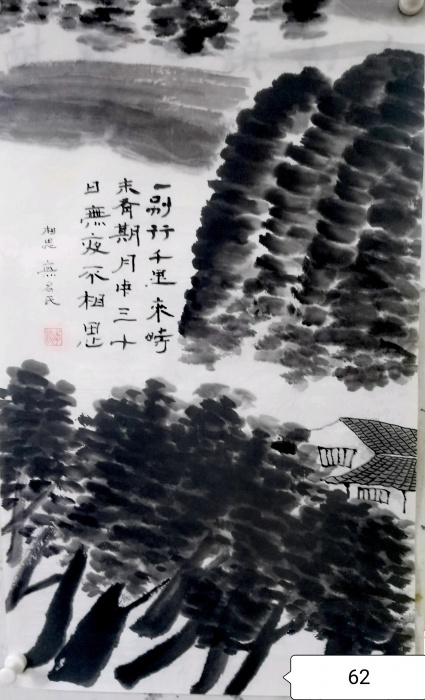 一别行千里来時
未有期月中三十
日無夜不相思
相思
62